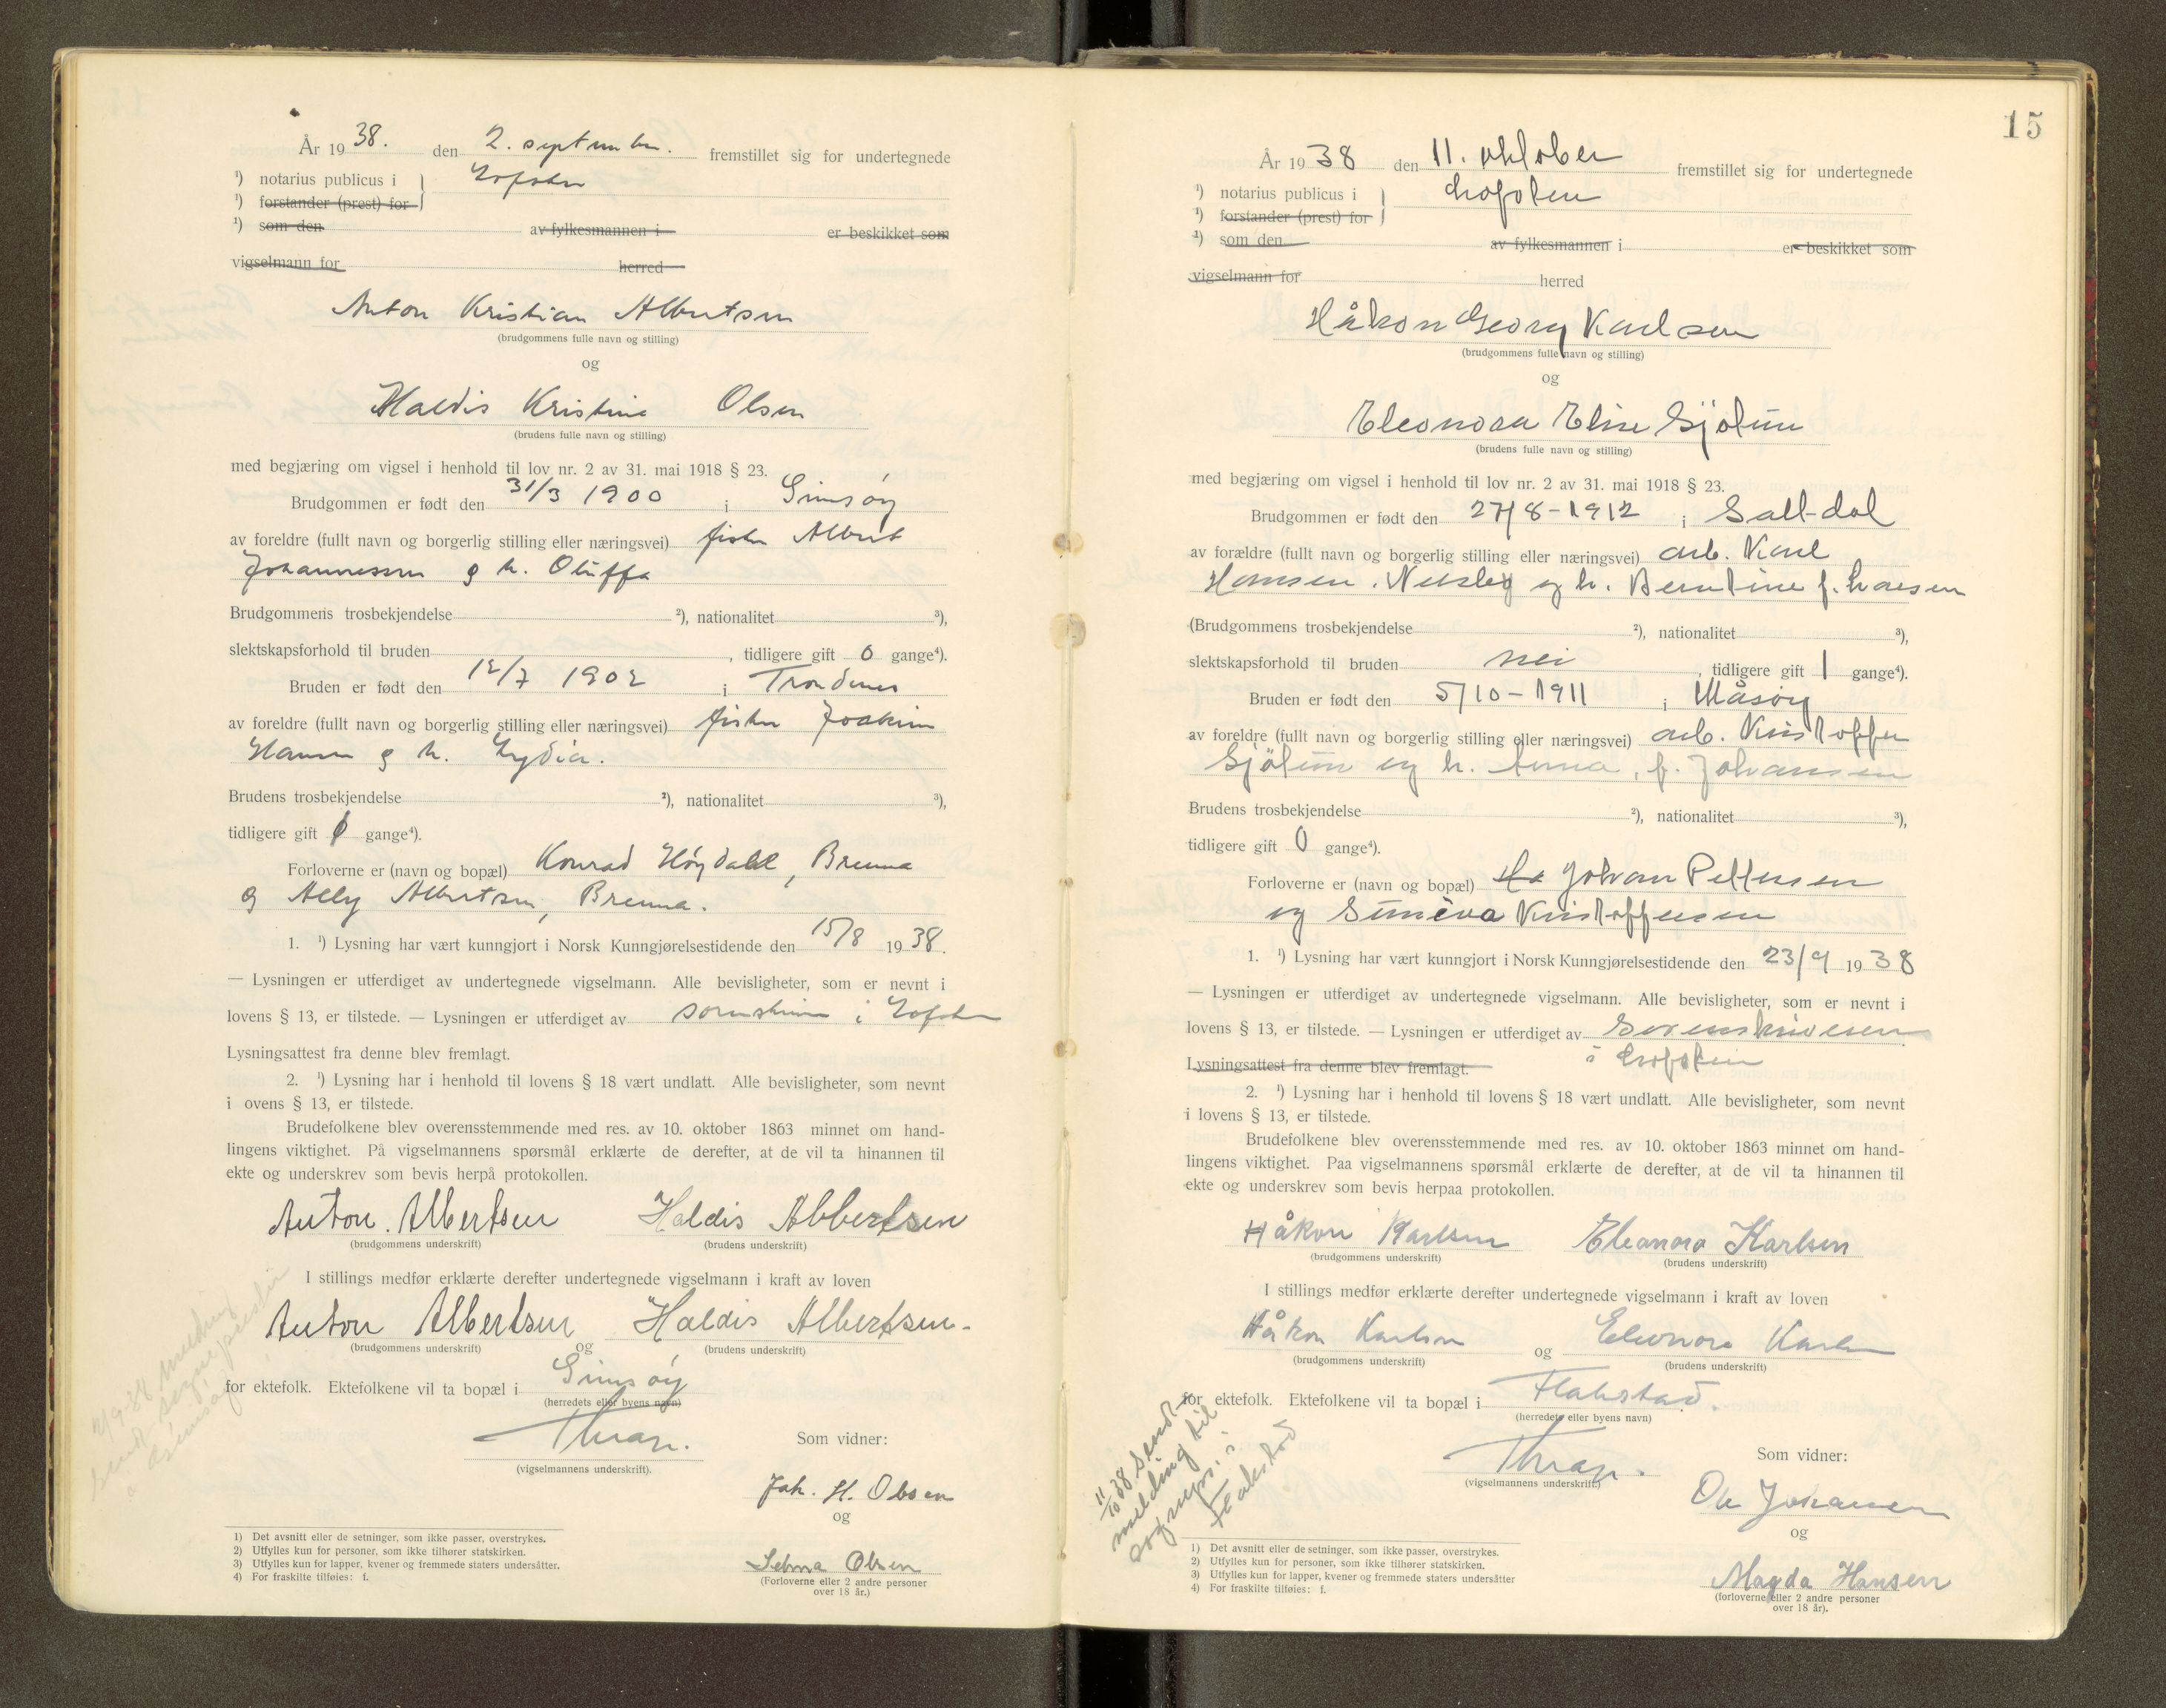 År 1938. den 2. september. fremstillet sig for undertegnede
¹) notarius publicus i } Lofoten
¹) forstander (prest) for
¹) som den av fylkesmannen i er beskikket som
vigselmann for herred
Anton Kristian Albertsen
(brudgommens fulle navn og stilling)
og
Haldis Kristine Olsen
(brudens fulle navn og stilling)
med begjæring om vigsel i henhold til lov nr. 2 av 31. mai 1918 § 23.
Brudgommen er født den 31/3 1900 i Gimsøy
av foreldre (fullt navn og borgerlig stilling eller næringsvei) fisker Albert
Johannessen og h. Oluffa
Brudgommens trosbekjendelse ²), nationalitet ³),
slektskapsforhold til bruden , tidligere gift 0 gange⁴).
Bruden er født den 12/7 1902 i Trondenes
av foreldre (fullt navn og borgerlig stilling eller næringsvei) fisker Joakim
Hansen og h. Lydia.
Brudens trosbekjendelse ²), nationalitet ³),
tidligere gift 0 gange⁴).
Forloverne er (navn og bopæl) Konrad Høydahl, Brenna
og Ally Albertsen, Brenna.
1. ¹) Lysning har vært kunngjort i Norsk Kunngjørelsestidende den 15/8 1938.
— Lysningen er utferdiget av undertegnede vigselmann. Alle bevisligheter, som er nevnt i
lovens § 13, er tilstede. — Lysningen er utferdiget av sorenskriveren i Lofoten
Lysningsattest fra denne blev fremlagt.
2. ¹) Lysning har i henhold til lovens § 18 vært undlatt. Alle bevisligheter, som nevnt
i ovens § 13, er tilstede.
Brudefolkene blev overensstemmende med res. av 10. oktober 1863 minnet om hand-
lingens viktighet. På vigselmannens spørsmål erklærte de derefter, at de vil ta hinannen til
ekte og underskrev som bevis herpå protokollen.
Anton. Albertsen Haldis Albertsen
(brudgommens underskrift) (brudens underskrift)
I stillings medfør erklærte derefter undertegnede vigselmann i kraft av loven
Anton Albertsen og Haldis Albertsen.
(brudgommens underskrift) (brudens underskrift)
for ektefolk. Ektefolkene vil ta bopæl i Gimsøy
(herredets eller byens navn)
Thrap.
(vigselmannens underskrift).
Som vidner:
Joh. H. Olsen
og
Selma Olsen
(Forloverne eller 2 andre personer
over 18 år.)
2/9-38 melding
sendt sognepresten
i Gimsøy
1) Det avsnitt eller de setninger, som ikke passer, overstrykes.
2) Utfylles kun for personer, som ikke tilhører statskirken.
3) Utfylles kun for lapper, kvener og fremmede staters undersåtter.
4) For fraskilte tilføies: f.
15
År 1938 den 11. oktober fremstillet sig for undertegnede
¹) notarius publicus i } Lofoten
¹) forstander (prest) for
¹) som den av fylkesmannen i er beskikket som
vigselmann for herred
Håkon Georg Karlsen
(brudgommens fulle navn og stilling)
og
Eleonora Elise Sjölun
(brudens fulle navn og stilling)
med begjæring om vigsel i henhold til lov nr. 2 av 31. mai 1918 § 23.
Brudgommen er født den 27/8-1912 i Salt-dal
av forældre (fullt navn og borgerlig stilling eller næringsvei) arb. Karl
Hansen. og h. Berntine f. Larsen
(Brudgommens trosbekjendelse ²), nationalitet ³),
slektskapsforhold til bruden nei , tidligere gift 1 gange⁴).
Bruden er født den 5/10-1911 i Måsøy
av foreldre (fullt navn og borgerlig stilling eller næringsvei) arb. Kristoffer
Sjölun og h. Anna, f. Johansen
Brudens trosbekjendelse ²), nationalitet ³),
tidligere gift 0 gange⁴).
Forloverne er (navn og bopæl) Ha Johan Pettersen
og Sunèva Kristoffersen
1. ¹) Lysning har vært kunngjort i Norsk Kunngjørelsestidende den 23/9 1938
— Lysningen er utferdiget av undertegnede vigselmann. Alle bevisligheter, som er nevnt i
lovens § 13, er tilstede. — Lysningen er utferdiget av Sorenskriveren
Lysningsattest fra denne blev fremlagt. i Lofoten
2. ¹) Lysning har i henhold til lovens § 18 vært undlatt. Alle bevisligheter, som nevnt
i lovens § 13, er tilstede.
Brudefolkene blev overensstemmende med res. av 10. oktober 1863 minnet om hand-
lingens viktighet. Paa vigselmannens spørsmål erklærte de derefter, at de vil ta hinannen til
ekte og underskrev som bevis herpaa protokollen.
Håkon Karlsen Eleonora Karlsen
(brudgommens underskrift) (brudens underskrift)
I stillings medfør erklærte derefter undertegnede vigselmann i kraft av loven
Håkon Karlsen og Eleonora Karlsen
(brudgommens underskrift) (brudens underskrift)
for ektefolk. Ektefolkene vil ta bopæl i Flakstad.
(herredets eller byens navn)
Thrap.
(vigselmannens underskrift.)
Som vidner:
Ole Johansen
og
Magda Hansen
(forloverne eller 2 andre personer
over 18 år).
11/10 38 sendt
melding til
sognepr. i
Flakstad
1) Det avsnitt eller de setninger, som ikke passer, overstrykes.
2) Utfylles kun for personer, som ikke tilhører statskirken.
3) Utfylles kun for lapper, kvener og fremmede staters undersåtter
4) For fraskilte tilføies: f.